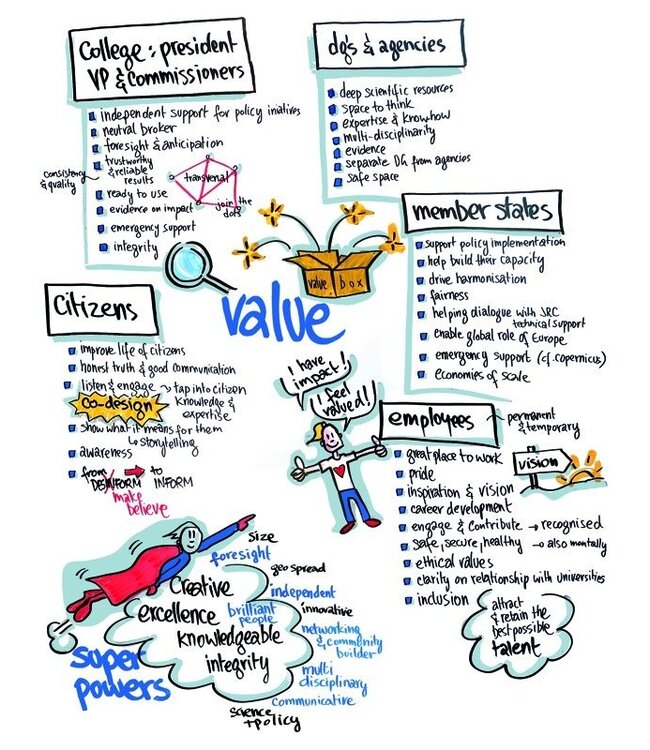 College : president
VP & Commissioners
independent support for policy iniatives
neutral broker
foresight & anticipation
trustworthy
& reliable
results
consistency
& quality
ready to use
evidence on impact
emergency support
integrity
transversal
join the
dots
dg's & agencies
deep scientific resources
space to think
expertise & knowhow
multi-disciplinarity
evidence
separate DG from agencies
safe space
value box
value
member states
support policy implementation
help build their capacity
drive harmonisation
fairness
helping dialogue with JRC
technical support
enable global role of Europe
emergency support (cf. copernicus)
economies of scale
Citizens
improve life of citizens
honest truth & good communication
listen & engage → tap into citizen
knowledge &
expertise
co-design
show what it means for them
↳ storytelling
awareness
from → to
DESINFORM INFORM
make
believe
I have
impact!
I feel
valued!
employees
→ permanent
& temporary
great place to work
pride
inspiration & vision
career development
engage & contribute → recognised
safe, secure, healthy → also mentally
ethical values
clarity on relationship with universities
inclusion
vision
attract
& retain the
best possible
talent
super
powers
Creative
excellence
brilliant
people
knowledgeable
integrity
size
foresight
geo spread
independent
innovative
networking
& community
builder
multi
disciplinary
communicative
science
+ policy